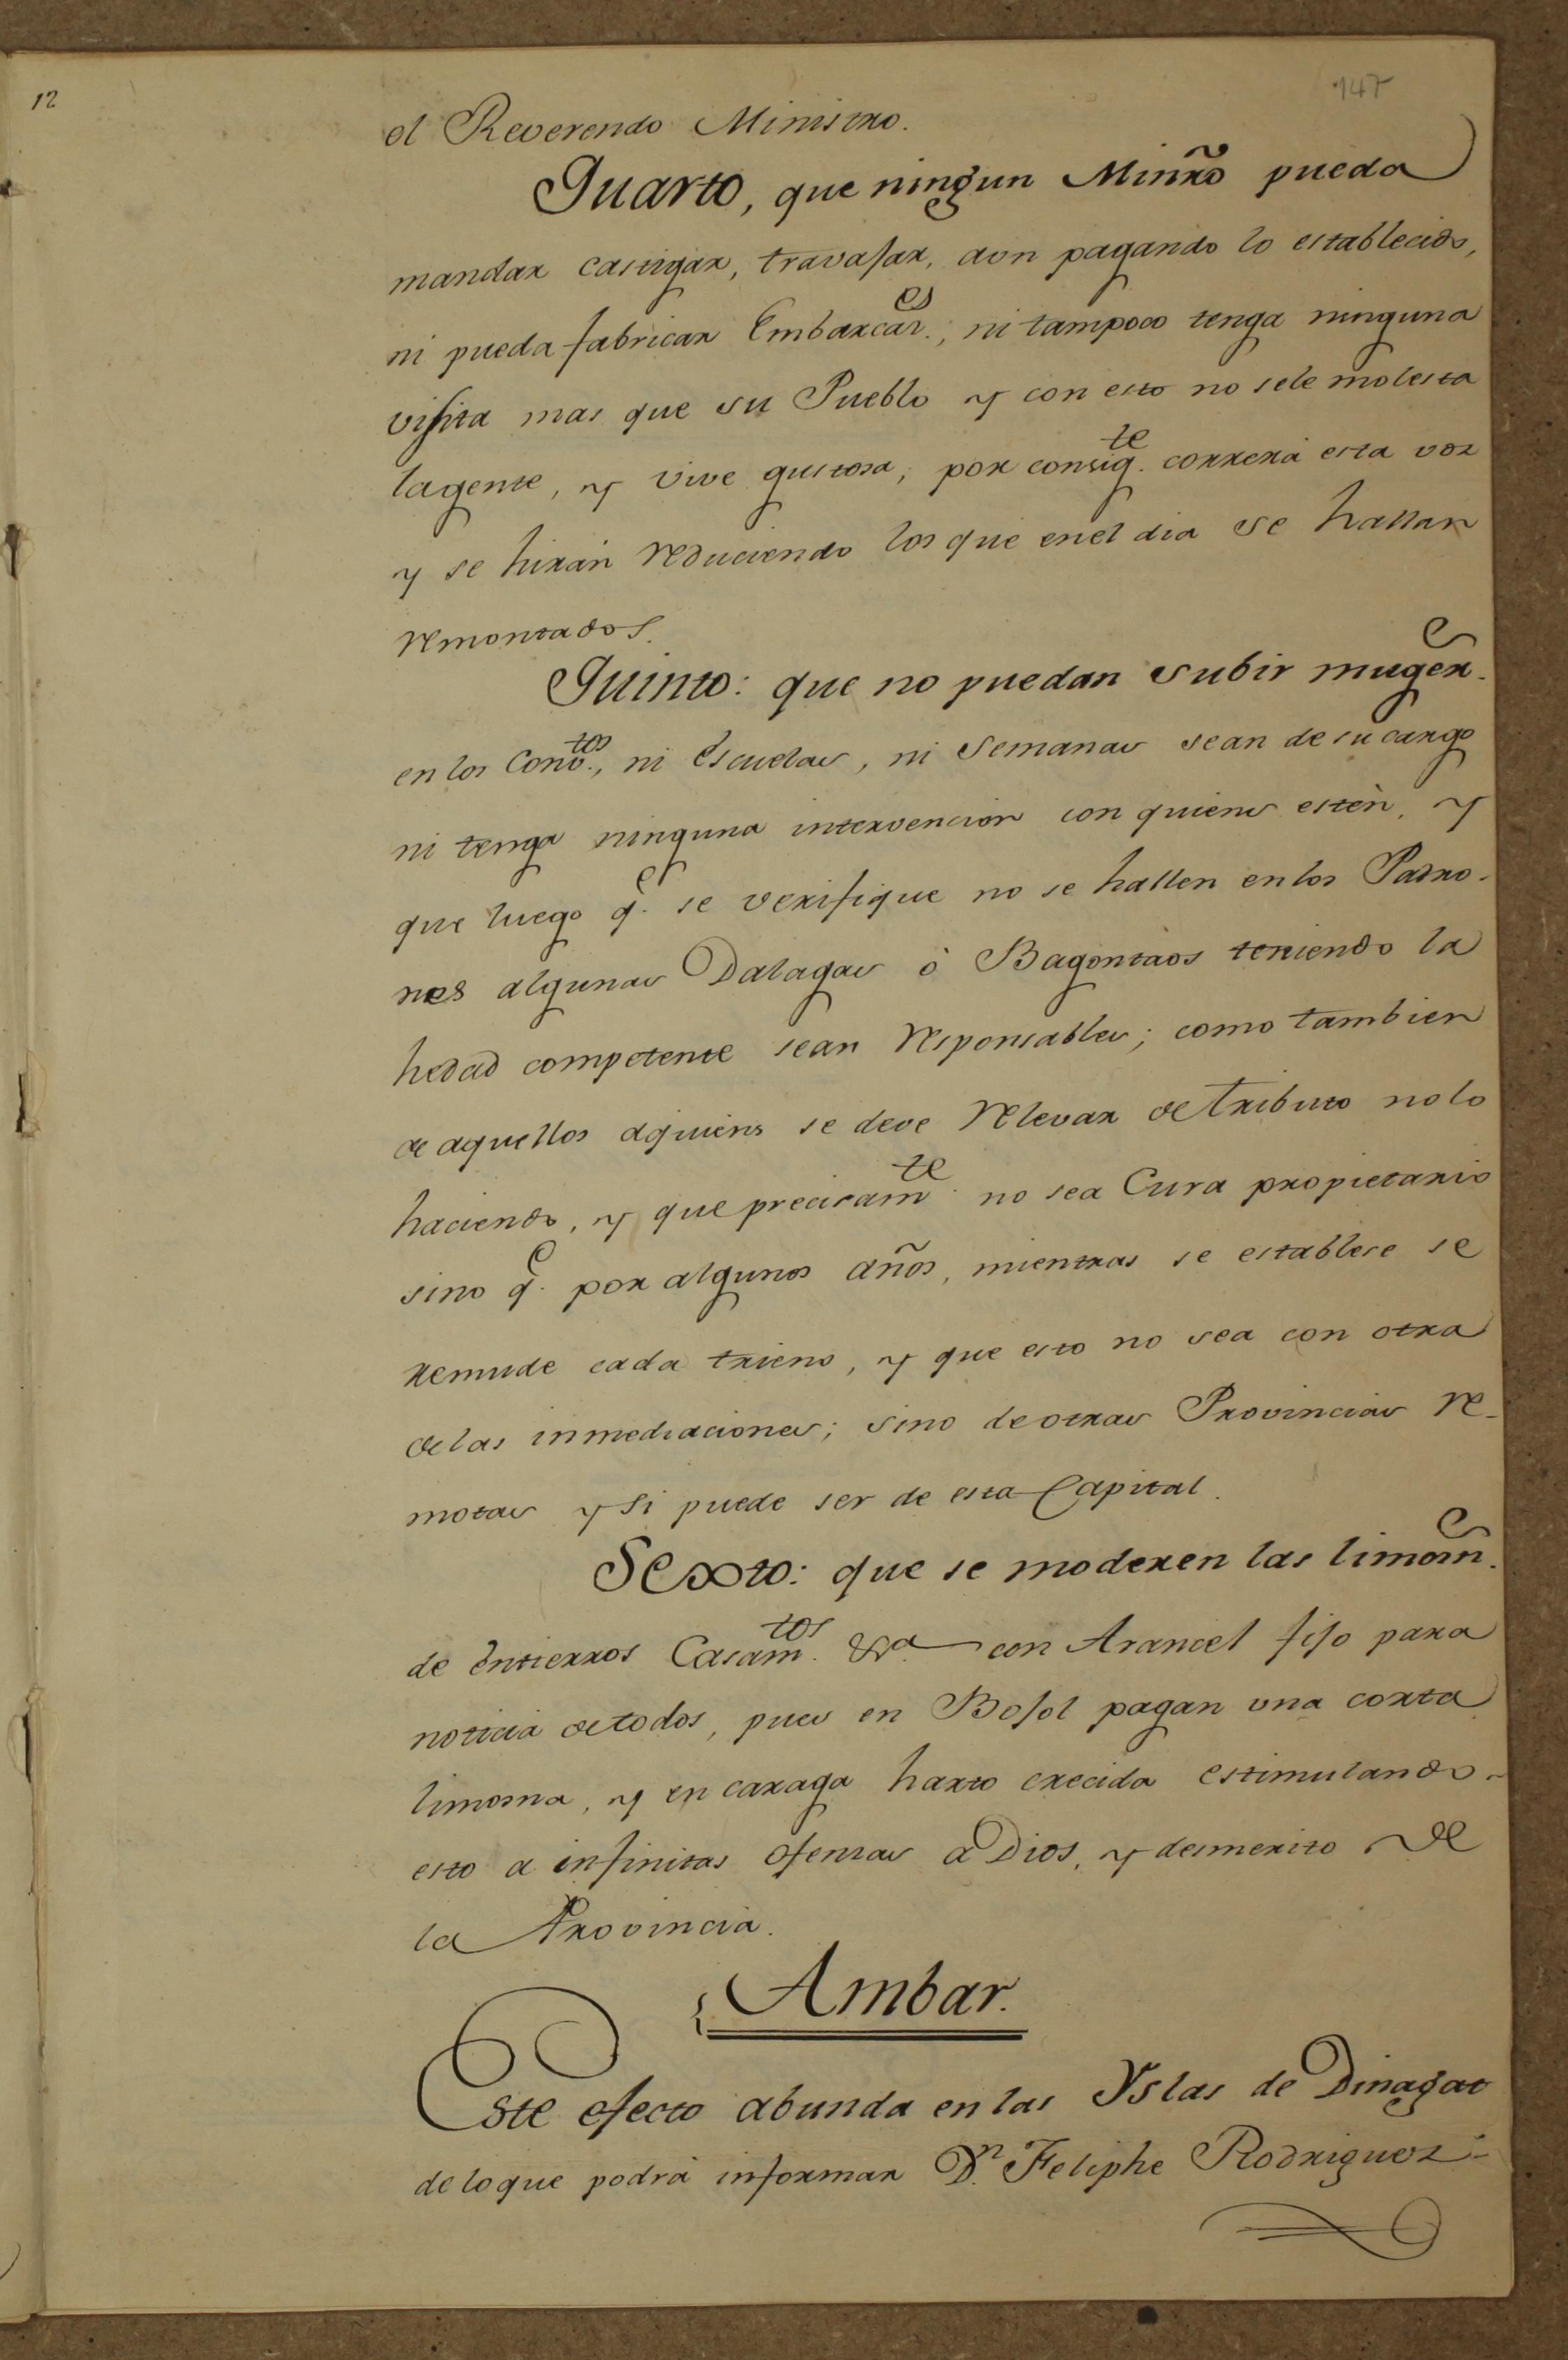 12
147
el Reverendo Ministro.
Quarto, que ningun Minrõ pueda
mandar castigar, travajar, aun pagando lo establecido,
ni pueda fabricar Embarcaes., ni tampoco tenga ninguna
visita mas que su Pueblo y con esto no sele molesta
lagente, y vive gustosa, por consigte. correrá esta voz
y se hirán reduciendo los que enel dia se hallan
remontados.
Quinto: que no puedan subir mugere.
en los Convtos., ni Escuelas, ni Semanas sean de su cargo
ni tenga ninguna intervencion con quienes estèn, y
que luego qe. se verifique no se hallen enlos Padro-
nes algunas Dalagas ò Bagontaos teniendo la
hedad competente sean responsables; como tambien
de aquellos aquiens se deve relevar de tributo nolo
haciendo, y que precisamte. no sea Cura propietario
sino qe. por algunos años, mientras se establese se
remude cada trieno, y que esto no sea con otra
delas inmediaciones; sino de otras Provincias re-
motas y si puede ser de esta Capital.
Sexto: que se moderen las limosne.
de Entierros Casamtos. &a. con Arancel fijo para
noticia detodos, pues en Bojol pagan una corta
limosna, y en caraga harto crecida estimulando-
esto a infinitas ofensas a Dios, y desmerito de
la Provincia.
Ambar.
Este efecto abunda en las Yslas de Dinagat
de loque podrá informar Dn. Feliphe Rodriguez-